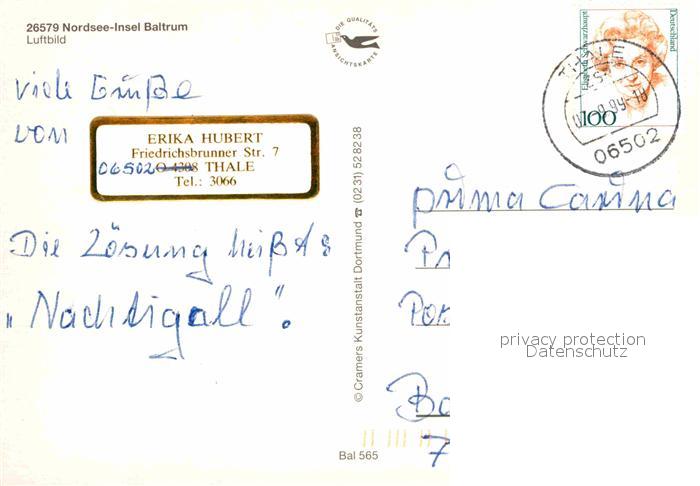 26579 Nordsee-Insel Baltrum
Luftbild
DIE QUALITÄTS
ANSICHTSKARTE
Deutschland
Elisabeth Schwarzhaupt
100
THALE
06502
viele Grüße
von
ERIKA HUBERT
Friedrichsbrunner Str. 7
06502 O-4308 THALE
Tel.: 3066
Die Lösung heißt
„Nachtigall".
© Cramers Kunstanstalt Dortmund ☎ (0231) 528238
prima Carina
Bal 565
privacy protection
Datenschutz